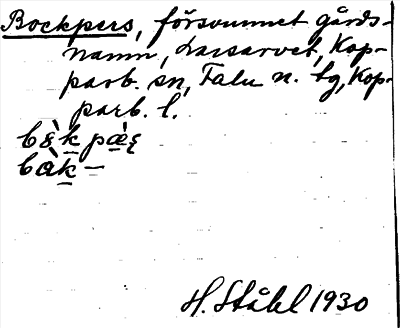 Bockpers, försvunnet gårds-
namn, Larsarvet, Kop-
parb. sn, Falu n. tg, Kop-
parb. l.
bɛ̀k pæ̀ʂ
bàk –
H. Ståhl 1930